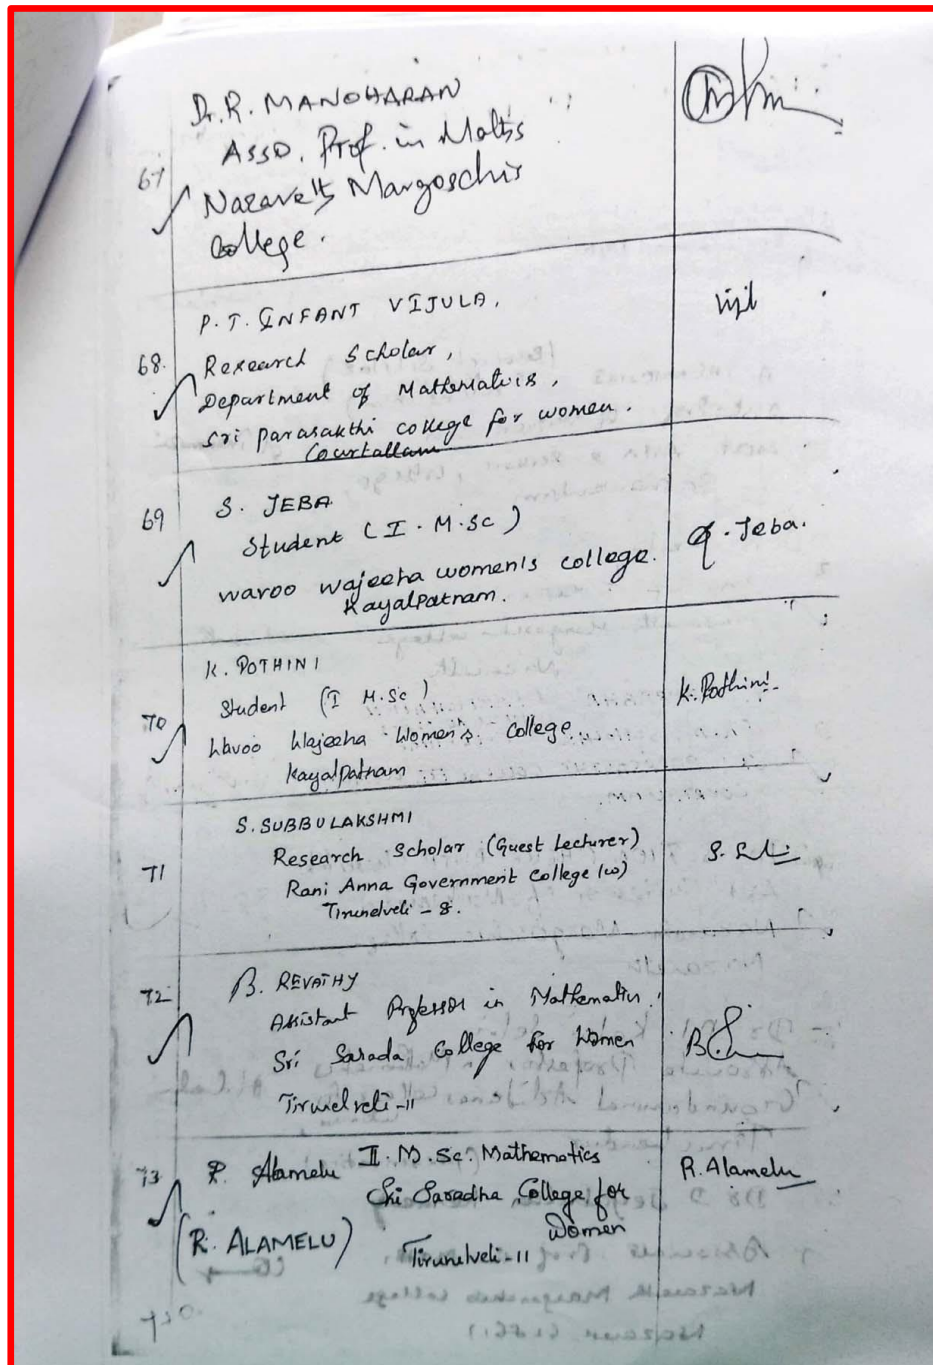 Dr. R. MANOHARAN
ASSO. Prof. in Maths
67
Nazareth Margoschis
College.
P. T. INFANT VIJULA,
Vijil
68. Research Scholar,
Department of Mathematics,
Sri parasakthi college for women.
Courtallam
69 S. JEBA
Student (I. M.Sc)
S. Jeba.
wavoo wajeeha women's college.
Kayalpatnam.
K. POTHINI
Student (I M.Sc)
K. Pothini
70
Wavoo Wajeeha Women's College
Kayalpatnam
S. SUBBULAKSHMI
Research Scholar (Guest Lecturer)
71 Rani Anna Government College (w)
Tirunelveli - 8.
72 B. REVATHY
Assistant Professor in Mathematics
Sri Sarada College for Women
Tirunelveli - 11
73 R. Alamelu II. M. Sc. Mathematics R. Alamelu
Sri Saradha College for
Women
(R. ALAMELU) Tirunelveli - 11